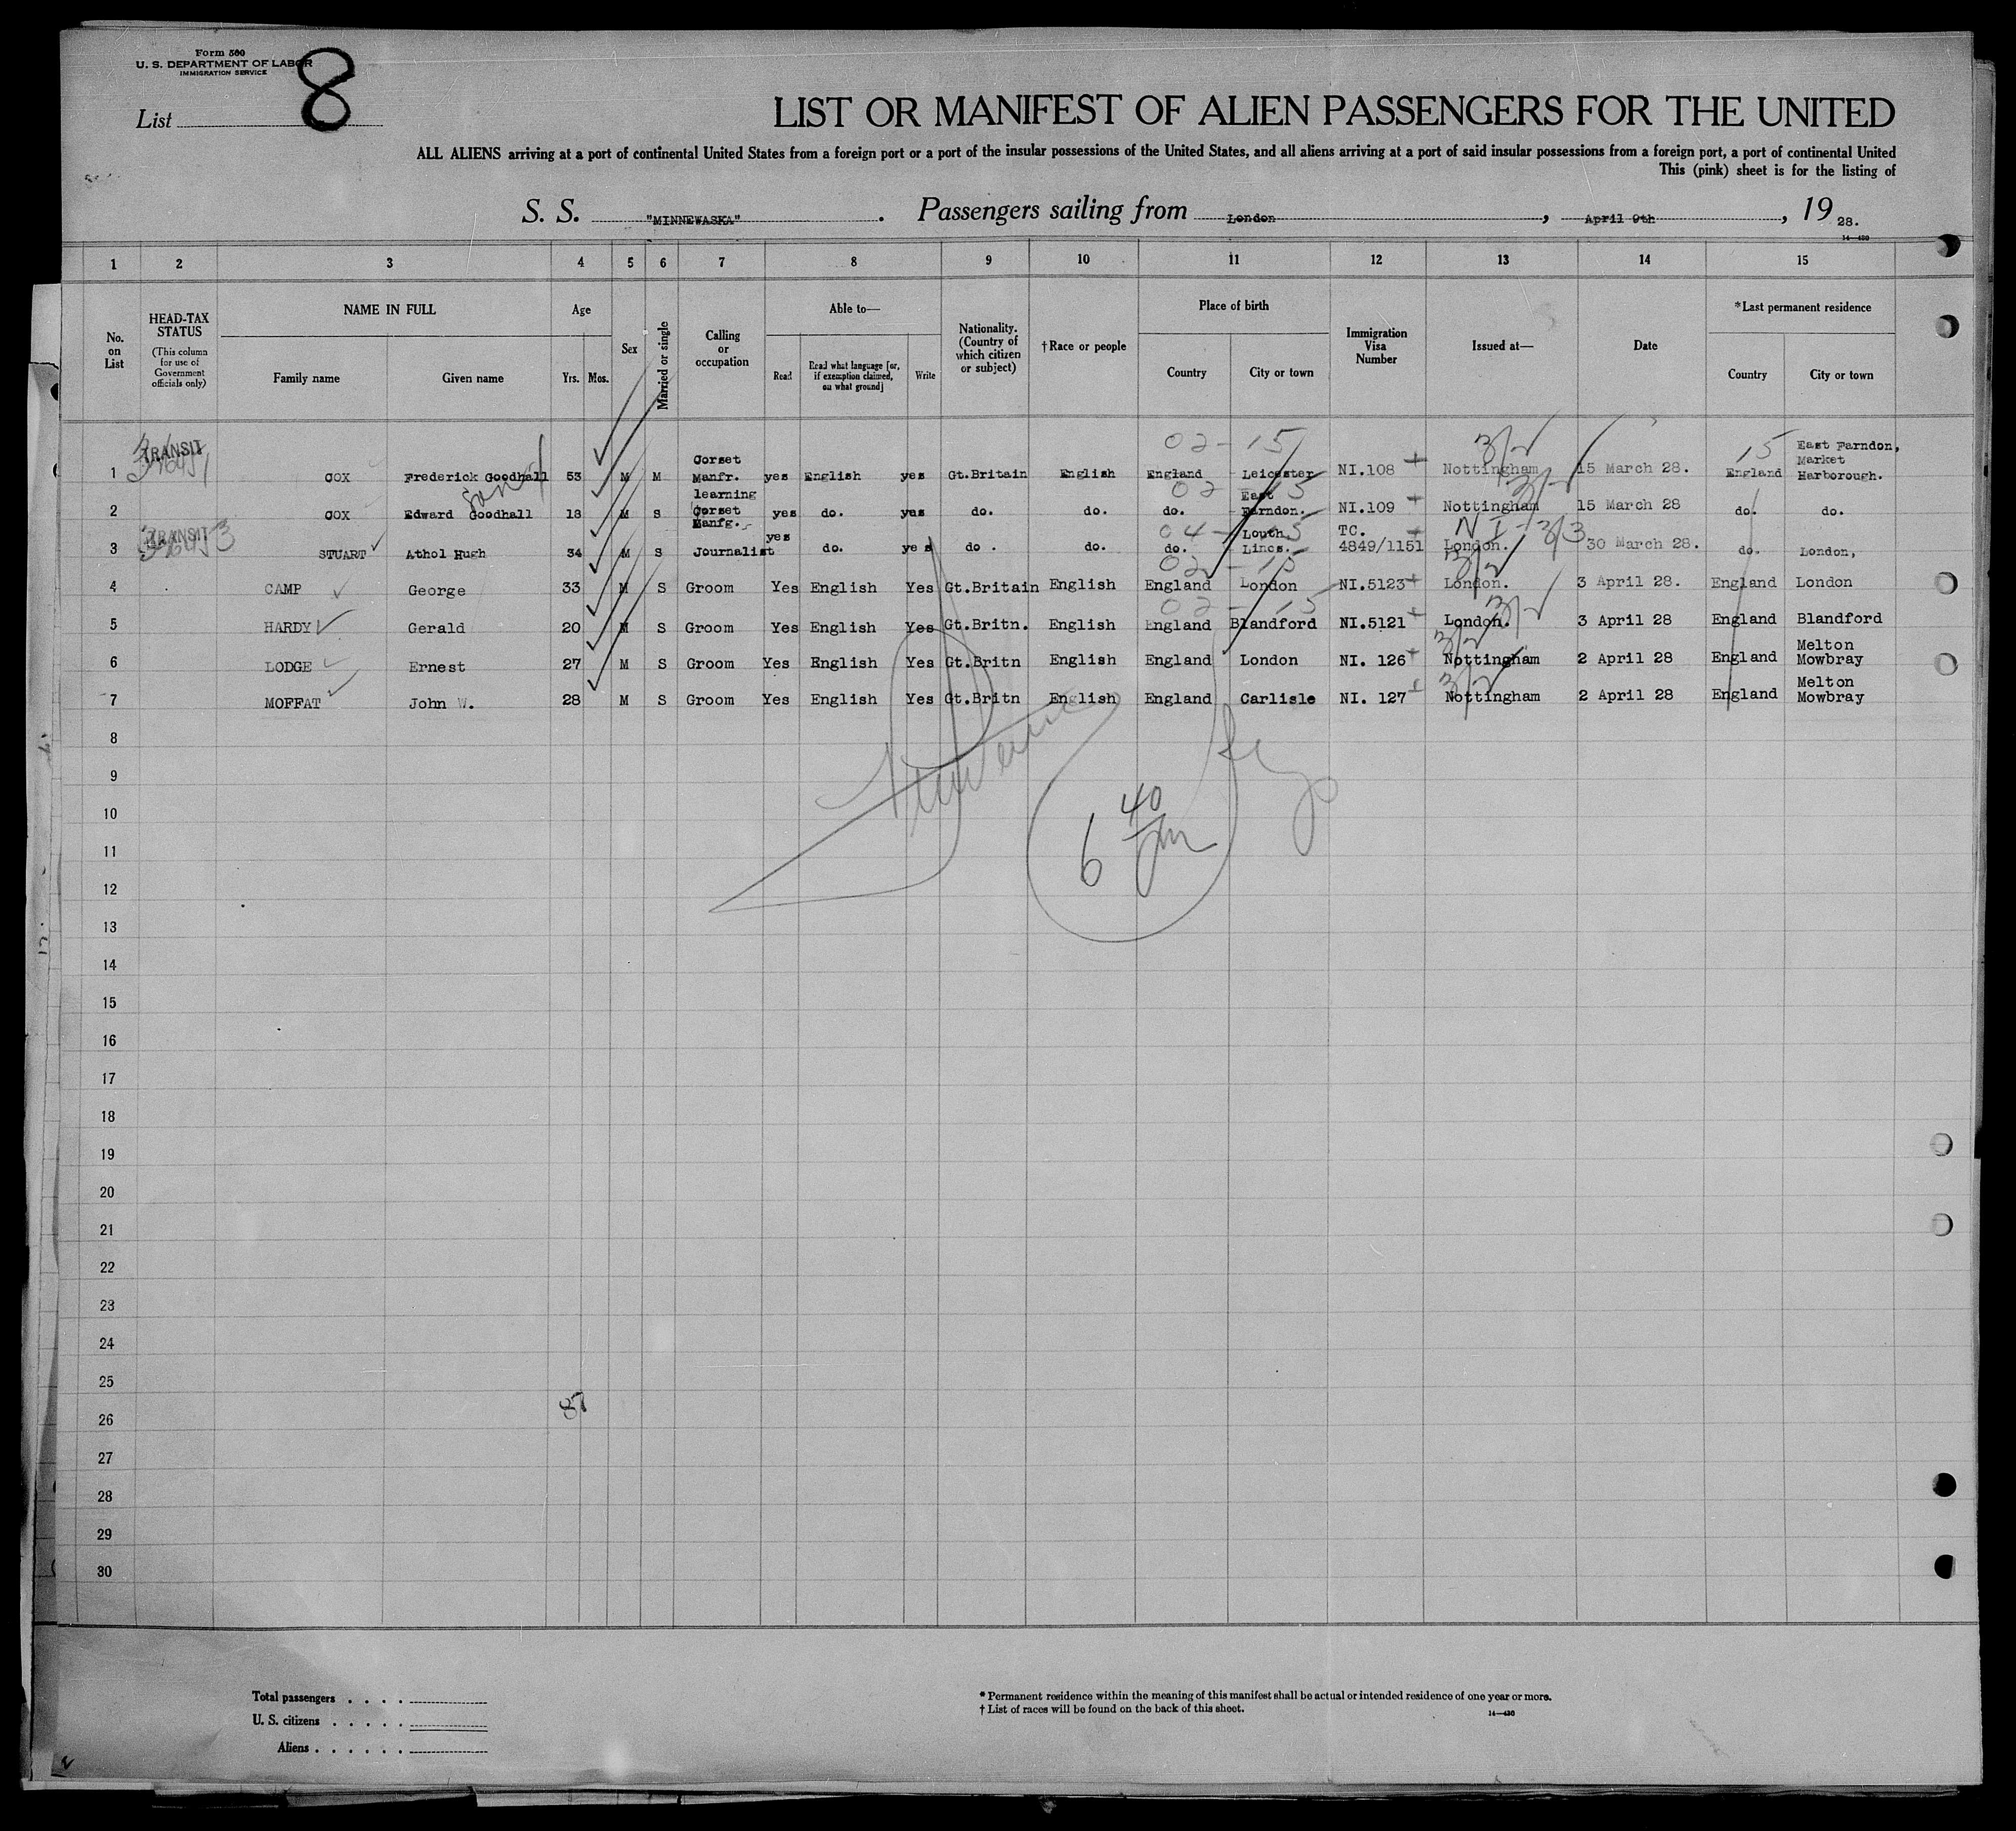 Form 500
U. S. DEPARTMENT OF LABOR
IMMIGRATION SERVICE
List 8
LIST OR MANIFEST OF ALIEN PASSENGERS FOR THE UNITED
ALL ALIENS arriving at a port of continental United States from a foreign port or a port of the insular possessions of the United States, and all aliens arriving at a port of said insular possessions from a foreign port, a port of continental United
This (pink) sheet is for the listing of
S. S. "MINNEWASKA". Passengers sailing from London, April 9th, 1928.
14—430
1 2 3 4 5 6 7 8 9 10 11 12 13 14 15
No. on List
HEAD-TAX STATUS
(This column for use of Government officials only)
NAME IN FULL
Family name Given name
Age
Yrs. Mos.
Sex
Married or single
Calling or occupation
Able to—
Read
Read what language [or, if exemption claimed, on what ground]
Write
Nationality. (Country of which citizen or subject)
†Race or people
Place of birth
Country City or town
Immigration Visa Number
Issued at—
Date
*Last permanent residence
Country City or town
02-15 3/2 15
1 TRANSIT COX Frederick Goodhall 53 M M Corset Manfr. yes English yes Gt.Britain English England Leicester NI.108 + Nottingham 15 March 28. England East Farndon, Market Harborough.
02-15 3/2
2 COX Edward Goodhall 18 M S learning Corset Manfg. yes do. yes do. do. do. East Farndon. NI.109 + Nottingham 15 March 28 do. do.
04-15 NI-3/3
3 TRANSIT STUART Athol Hugh 34 M S Journalist yes do. yes do. do. do. Louth Lincs. TC. 4849/1151 London. 30 March 28. do. London,
02-15 3/2
4 CAMP George 33 M S Groom Yes English Yes Gt.Britain English England London NI.5123+ London. 3 April 28. England London
02-15 3/2
5 HARDY Gerald 20 M S Groom Yes English Yes Gt.Britn. English England Blandford NI.5121 + London. 3 April 28 England Blandford
3/2
6 LODGE Ernest 27 M S Groom Yes English Yes Gt.Britn English England London NI. 126+ Nottingham 2 April 28 England Melton Mowbray
3/2
7 MOFFAT John W. 28 M S Groom Yes English Yes Gt.Britn English England Carlisle NI. 127+ Nottingham 2 April 28 England Melton Mowbray
8
9
10
6 40 pm
11
12
13
14
15
16
17
18
19
20
21
22
23
24
25
26
27
28
29
30
Total passengers
U. S. citizens
Aliens
* Permanent residence within the meaning of this manifest shall be actual or intended residence of one year or more.
† List of races will be found on the back of this sheet.
14—430